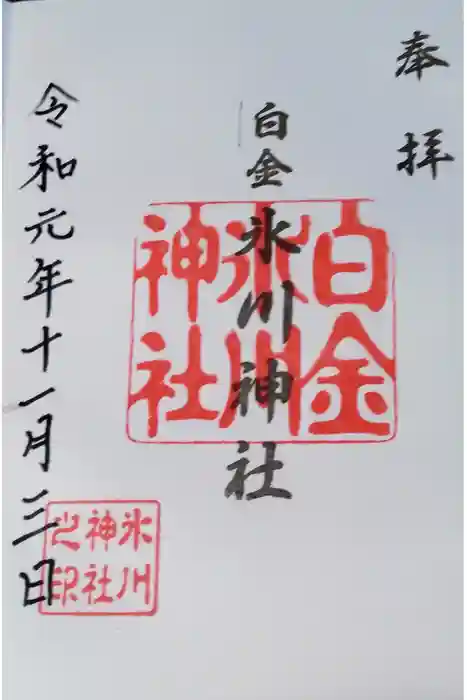 奉拝
白金氷川神社
白金
氷川
神社
令和元年十一月三日
氷川
神社
之印